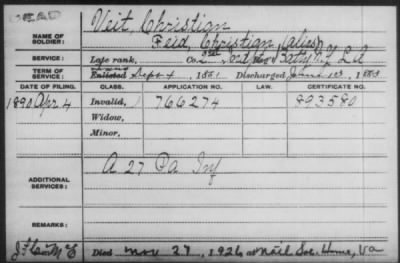 DEAD
Veit, Christian
NAME OF SOLDIER:
Feid, Christian (alias)
SERVICE:
Late rank, Co. Batty L.A
TERM OF SERVICE:
Enlisted Sept 4, 1861 Discharged June 13, 1865
DATE OF FILING. CLASS. APPLICATION NO. LAW. CERTIFICATE NO.
1890 Apr 4 Invalid, 766274 893580
Widow,
Minor,
ADDITIONAL SERVICES:
A 27 Pa Inf
REMARKS:
Died Nov 27, 1926 at Natl Sol. Home, Va